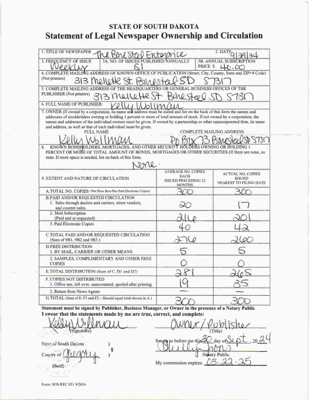 STATE OF SOUTH DAKOTA
Statement of Legal Newspaper Ownership and Circulation
1. TITLE OF NEWSPAPER The Bonesteel Enterprise
2. DATE
3. FREQUENCY OF ISSUE Weekly
3A. NO. OF ISSUES PUBLISHED ANNUALLY 51
3B. ANNUAL SUBSCRIPTION PRICE $ 46.00
4. COMPLETE MAILING ADDRESS OF KNOWN OFFICE OF PUBLICATION (Street, City, County, State and ZIP+4 Code)
(Not printers) 313 Mellette St Bonesteel SD 57317
5. COMPLETE MAILING ADDRESS OF THE HEADQUARTERS OR GENERAL BUSINESS OFFICES OF THE
PUBLISHER (Not printers) 313 Mellette St Bonesteel SD 57317
6. FULL NAME OF PUBLISHER: Kelly Wollman
7. OWNER (If owned by a corporation, its name and address must be stated and also the names and
addresses of stockholders owning or holding 1 percent or more of total amount of stock. If not owned by a corporation, the
names and addresses of the individual owners must be given. If owned by a partnership or other unincorporated firm, its name
and address, as well as that of each individual must be given.
FULL NAME
COMPLETE MAILING ADDRESS
Kelly Wollman
PO Box 73 Bonesteel SD 57317
8. KNOWN BONDHOLDERS, MORTGAGES, AND OTHER SECURITY HOLDERS OWNING OR HOLDING 1
PERCENT OR MORE OF TOTAL AMOUNT OF BONDS, MORTGAGES OR OTHER SECURITIES (If there are none, so
state. If more space is needed, list on back of this form.
None
9. EXTENT AND NATURE OF CIRCULATION
AVERAGE NO. COPIES
EACH
ISSUED PRECEDING 12
MONTHS
ACTUAL NO. COPIES
ISSUED
NEAREST TO FILING DATE
A. TOTAL NO. COPIES 300 300
B. PAID AND/OR REQUESTED CIRCULATION
1. Sales through dealers and carriers, street vendors,
and counter sales. 20 17
2. Mail Subscription
(Paid and or requested) 216 201
3. Paid Electronic Copies 40 42
C. TOTAL PAID AND/OR REQUESTED CIRCULATION
(Sum of 9B1, 9B2 and 9B3.) 276 260
D. FREE DISTRIBUTION
1. BY MAIL, CARRIER OR OTHER MEANS 5 5
2. SAMPLES, COMPLIMENTARY AND OTHER FREE
COPIES 0 0
E. TOTAL DISTRIBUTION (Sum of C, D1 and D2) 281 265
F. COPIES NOT DISTRIBUTED
1. Office use, left over, unaccounted, spoiled after printing 19 35
2. Return from News Agents
G. TOTAL (Sum of E, F1 and F2 - Should equal total shown in A.) 300 300
Statement must be signed by Publisher, Business Manager, or Owner in the presence of a Notary Public
I swear that the statements made by me are true, correct, and complete:
Kelly Wollman
Owner/Publisher
(Signature)
(Title)
State of South Dakota
County of Gregory
(Seal)
Notary Public
My commission expires: 03-22-25
Form: SOS REC 051 9/2016